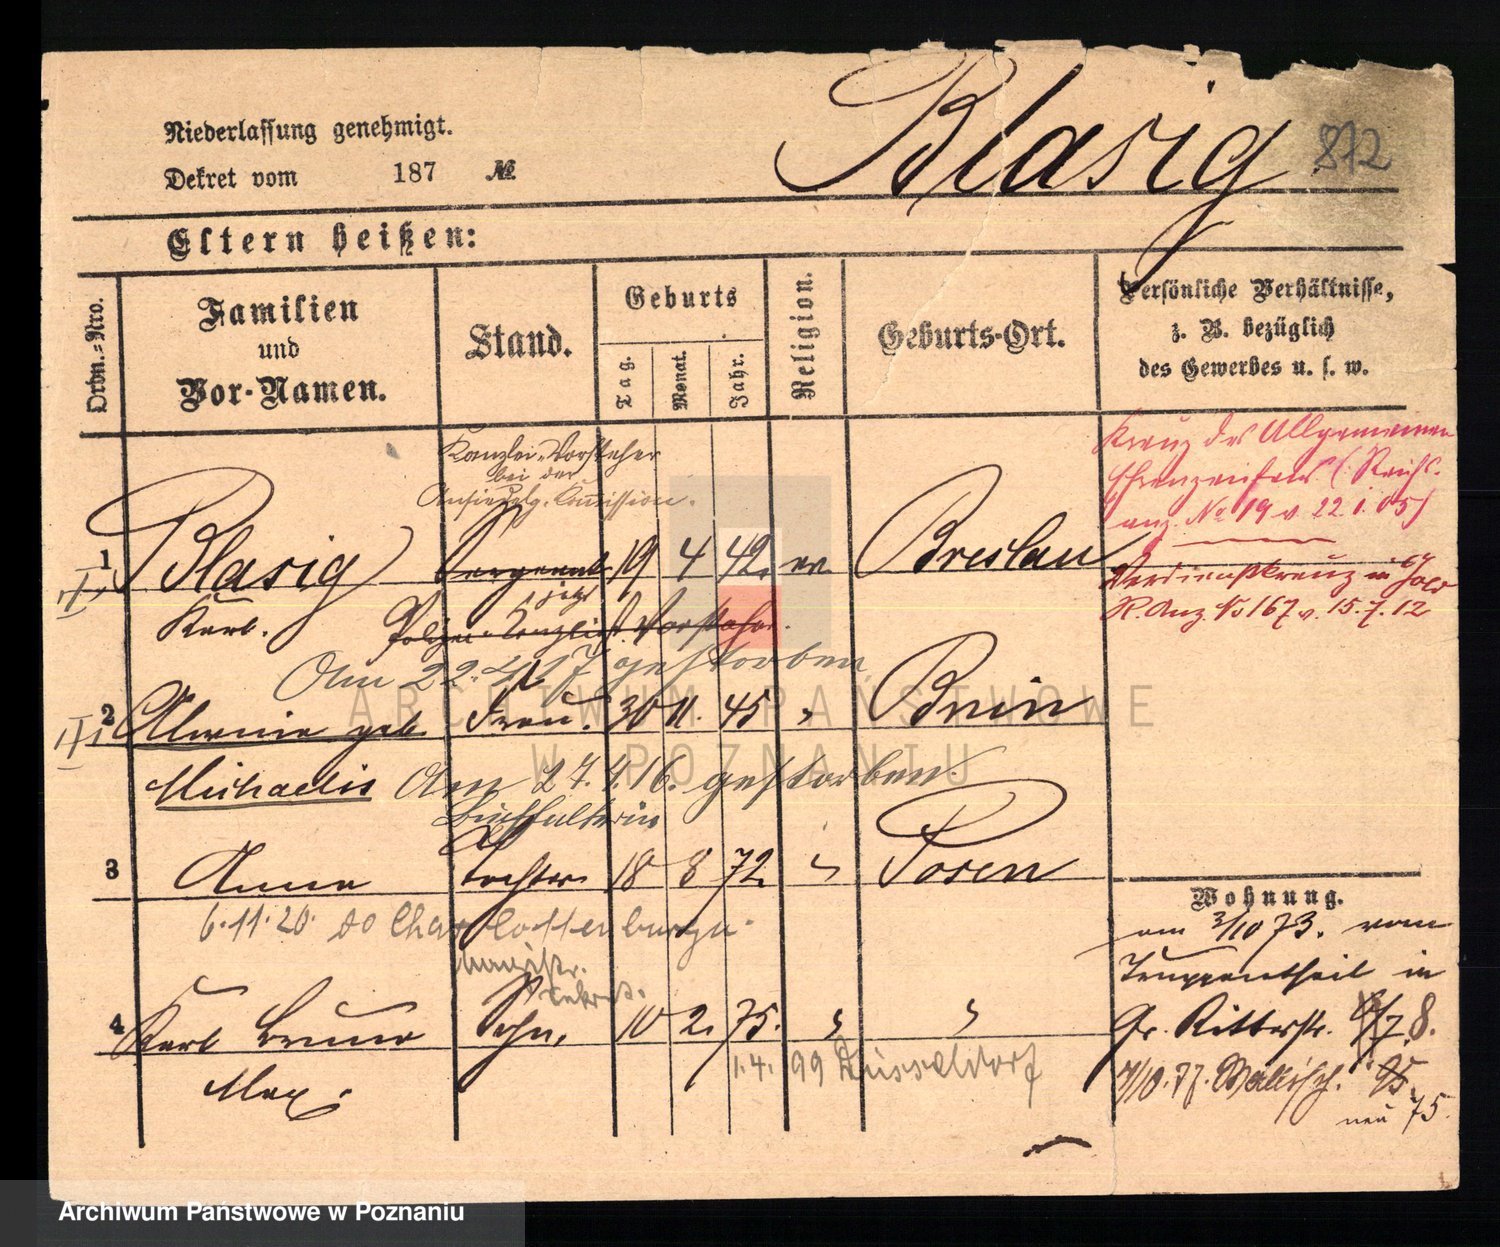 Blasig
872
Niederlassung genehmigt.
Dekret vom 187 №
Eltern heißen:
Ordn.-Nro.
Familien
und
Vor-Namen.
Stand.
Geburts
Tag.
Monat.
Jahr.
Religion.
Geburts-Ort.
Persönliche Verhältnisse,
z. B. bezüglich
des Gewerbes u. s. w.
Kanzlei-Vorsteher
bei der
Ansiedlg. Kommission.
Kreuz des Allgemeinen
Ehrenzeichens (Reichs
anz. No 19 v. 22 1. 05)
1 Blasig Sergeant 19 4 42. ev Breslau
Karl. jetzt
Polizei Vorsteher.
Verdienstkreuz in Gold
R. Anz No 167 v. 15.7.12
Am 22. 4. 17 gestorben
2 geb. Frau. 30 11. 45 " Bnin
Michaelis Am 27. 4. 16. gestorben.
Buchhalterin
3 Anna Tochter 18 8 72. " Posen
6.11.20. Charlottenburg
Wohnung.
am 3/10 73. vom
Truppentheil in
Gr. Ritterstr. 8.
Magistr.
Sekret.
4 Karl Bruno Sohn, 10 2. 75. " "
Max.
1.4.99 Düsseldorf
7/10.77. Wallisch. 85.
neu 75.
ARCHIWUM PAŃSTWOWE
W POZNANIU
Archiwum Państwowe w Poznaniu